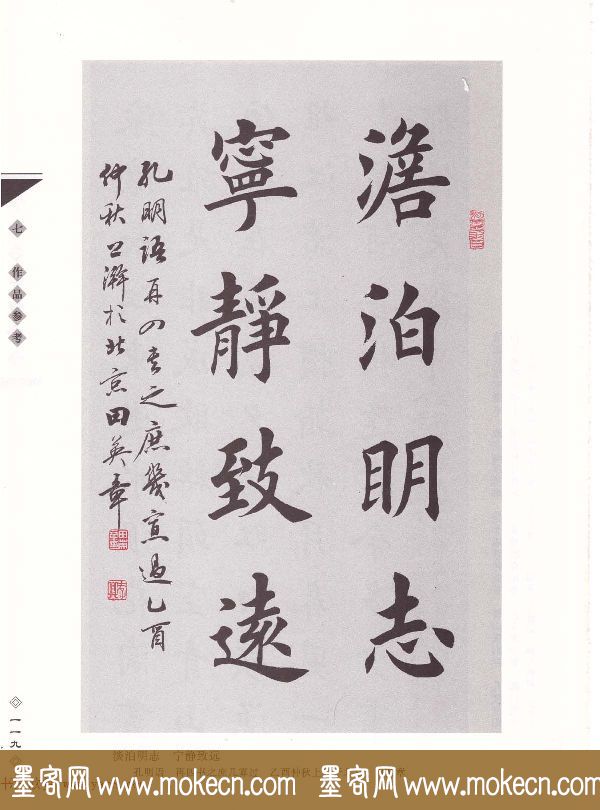 澹泊明志
寧靜致遠
孔明語再四書之庶幾寡過乙酉
仲秋上澣於北京田英章
七 作品参考
一一九
淡泊明志 宁静致远
墨客网 www.mokecn.com 墨客网 www.mokecn.com